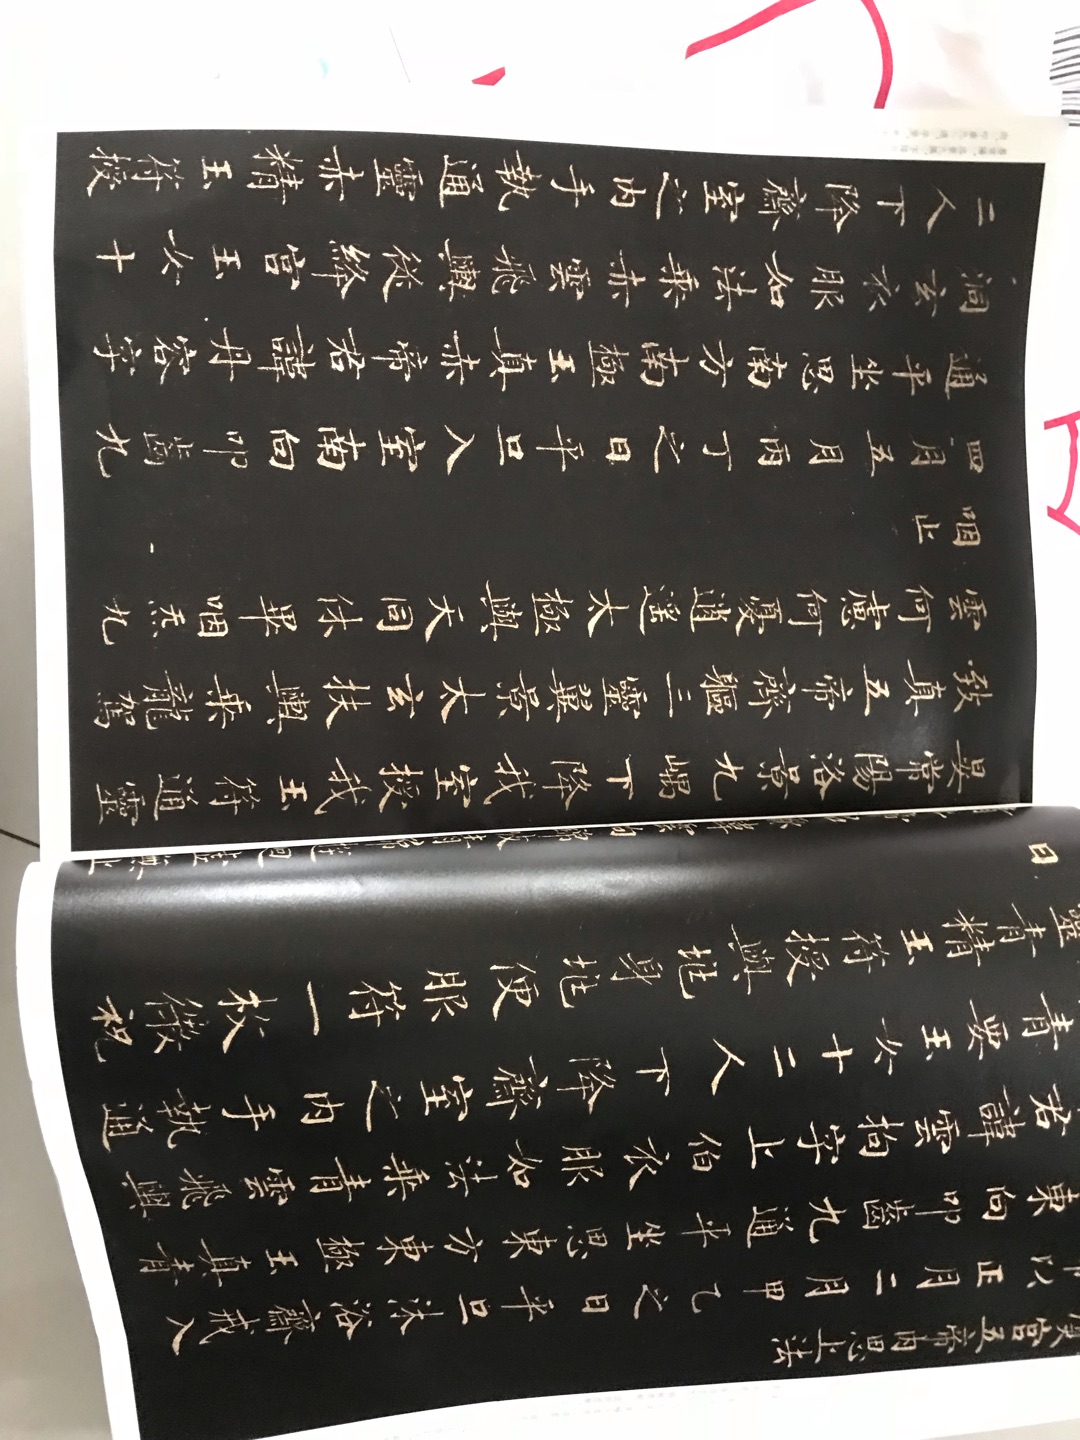 宮五帝内思上法
以正月二月甲乙之日平旦沐浴齋戒入
東向叩齒九通平坐思東方東極玉真青
君諱雲拘字上伯衣服如法乘青雲飛輿
青要玉女十二人下降齋室之内手執通
靈青精玉符授與兆身兆便服符一枚微祝
曰
雲拘錦帔青帬遊迴虛無上
晏常陽洛景九嵎下降我室授我玉符通靈
致真五帝齊軀三靈翼景太玄扶輿乘龍駕
雲何慮何憂逍遙太極與天同休畢咽炁九
咽止
四月五月丙丁之日平旦入室南向叩齒九
通平坐思南方南極玉真赤帝君諱丹容字
洞玄衣服如法乘赤雲飛輿從絳宮玉女十
二人下降齋室之内手執通靈赤精玉符授